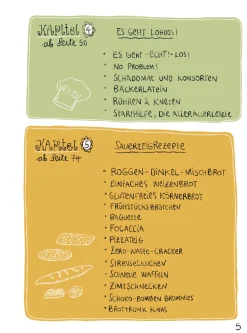 KAPITEL 4
ab Seite 50
ES GEHT LOHOOS!
• ES GEHT -ECHT!- LOS!
• NO PROBLEM!
• SCHADOMAT UND KONSORTEN
• BÄCKERLATEIN
• RÜHREN & KNETEN
• STARTHILFE, DIE ALLERALLERLETZTE
KAPITEL 5
ab Seite 74
SAUERTEIGREZEPTE
• ROGGEN-DINKEL-MISCHBROT
• EINFACHES WEIZENBROT
• GLUTENFREIES KÖRNERBROT
• FRÜHSTÜCKSBRÖTCHEN
• BAGUETTE
• FOCACCIA
• PIZZATEIG
• ZERO-WASTE-CRACKER
• STREUSELKUCHEN
• SCHNELLE WAFFELN
• ZIMTSCHNECKEN
• SCHOKO-BOMBEN BROWNIES
• BROTTRUNK KWAS
5